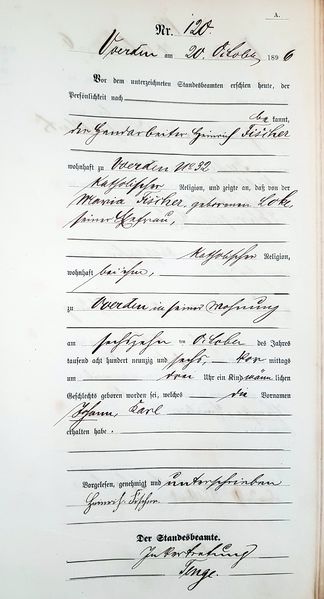 A.
Nr. 120.
Voerden am 20. October 1896
Vor dem unterzeichneten Standesbeamten erschien heute, der
Persönlichkeit nach
be kannt,
der Handarbeiter Heinrich Fischer
wohnhaft zu Voerden No 32
katholischer Religion, und zeigte an, daß von der
Maria Fischer, geborenen
seiner Ehefrau,
katholischer Religion,
wohnhaft bei ihm,
zu Voerden in seiner Wohnung
am sechszehn ten October des Jahres
tausend acht hundert neunzig und sechs, Vor mittags
um drei Uhr ein Kind männ lichen
Geschlechts geboren worden sei, welches die Vornamen
Johann, Karl
erhalten habe.
Vorgelesen, genehmigt und unterschrieben
Heinrich Fischer
Der Standesbeamte.
In Vertretung
Tenge.